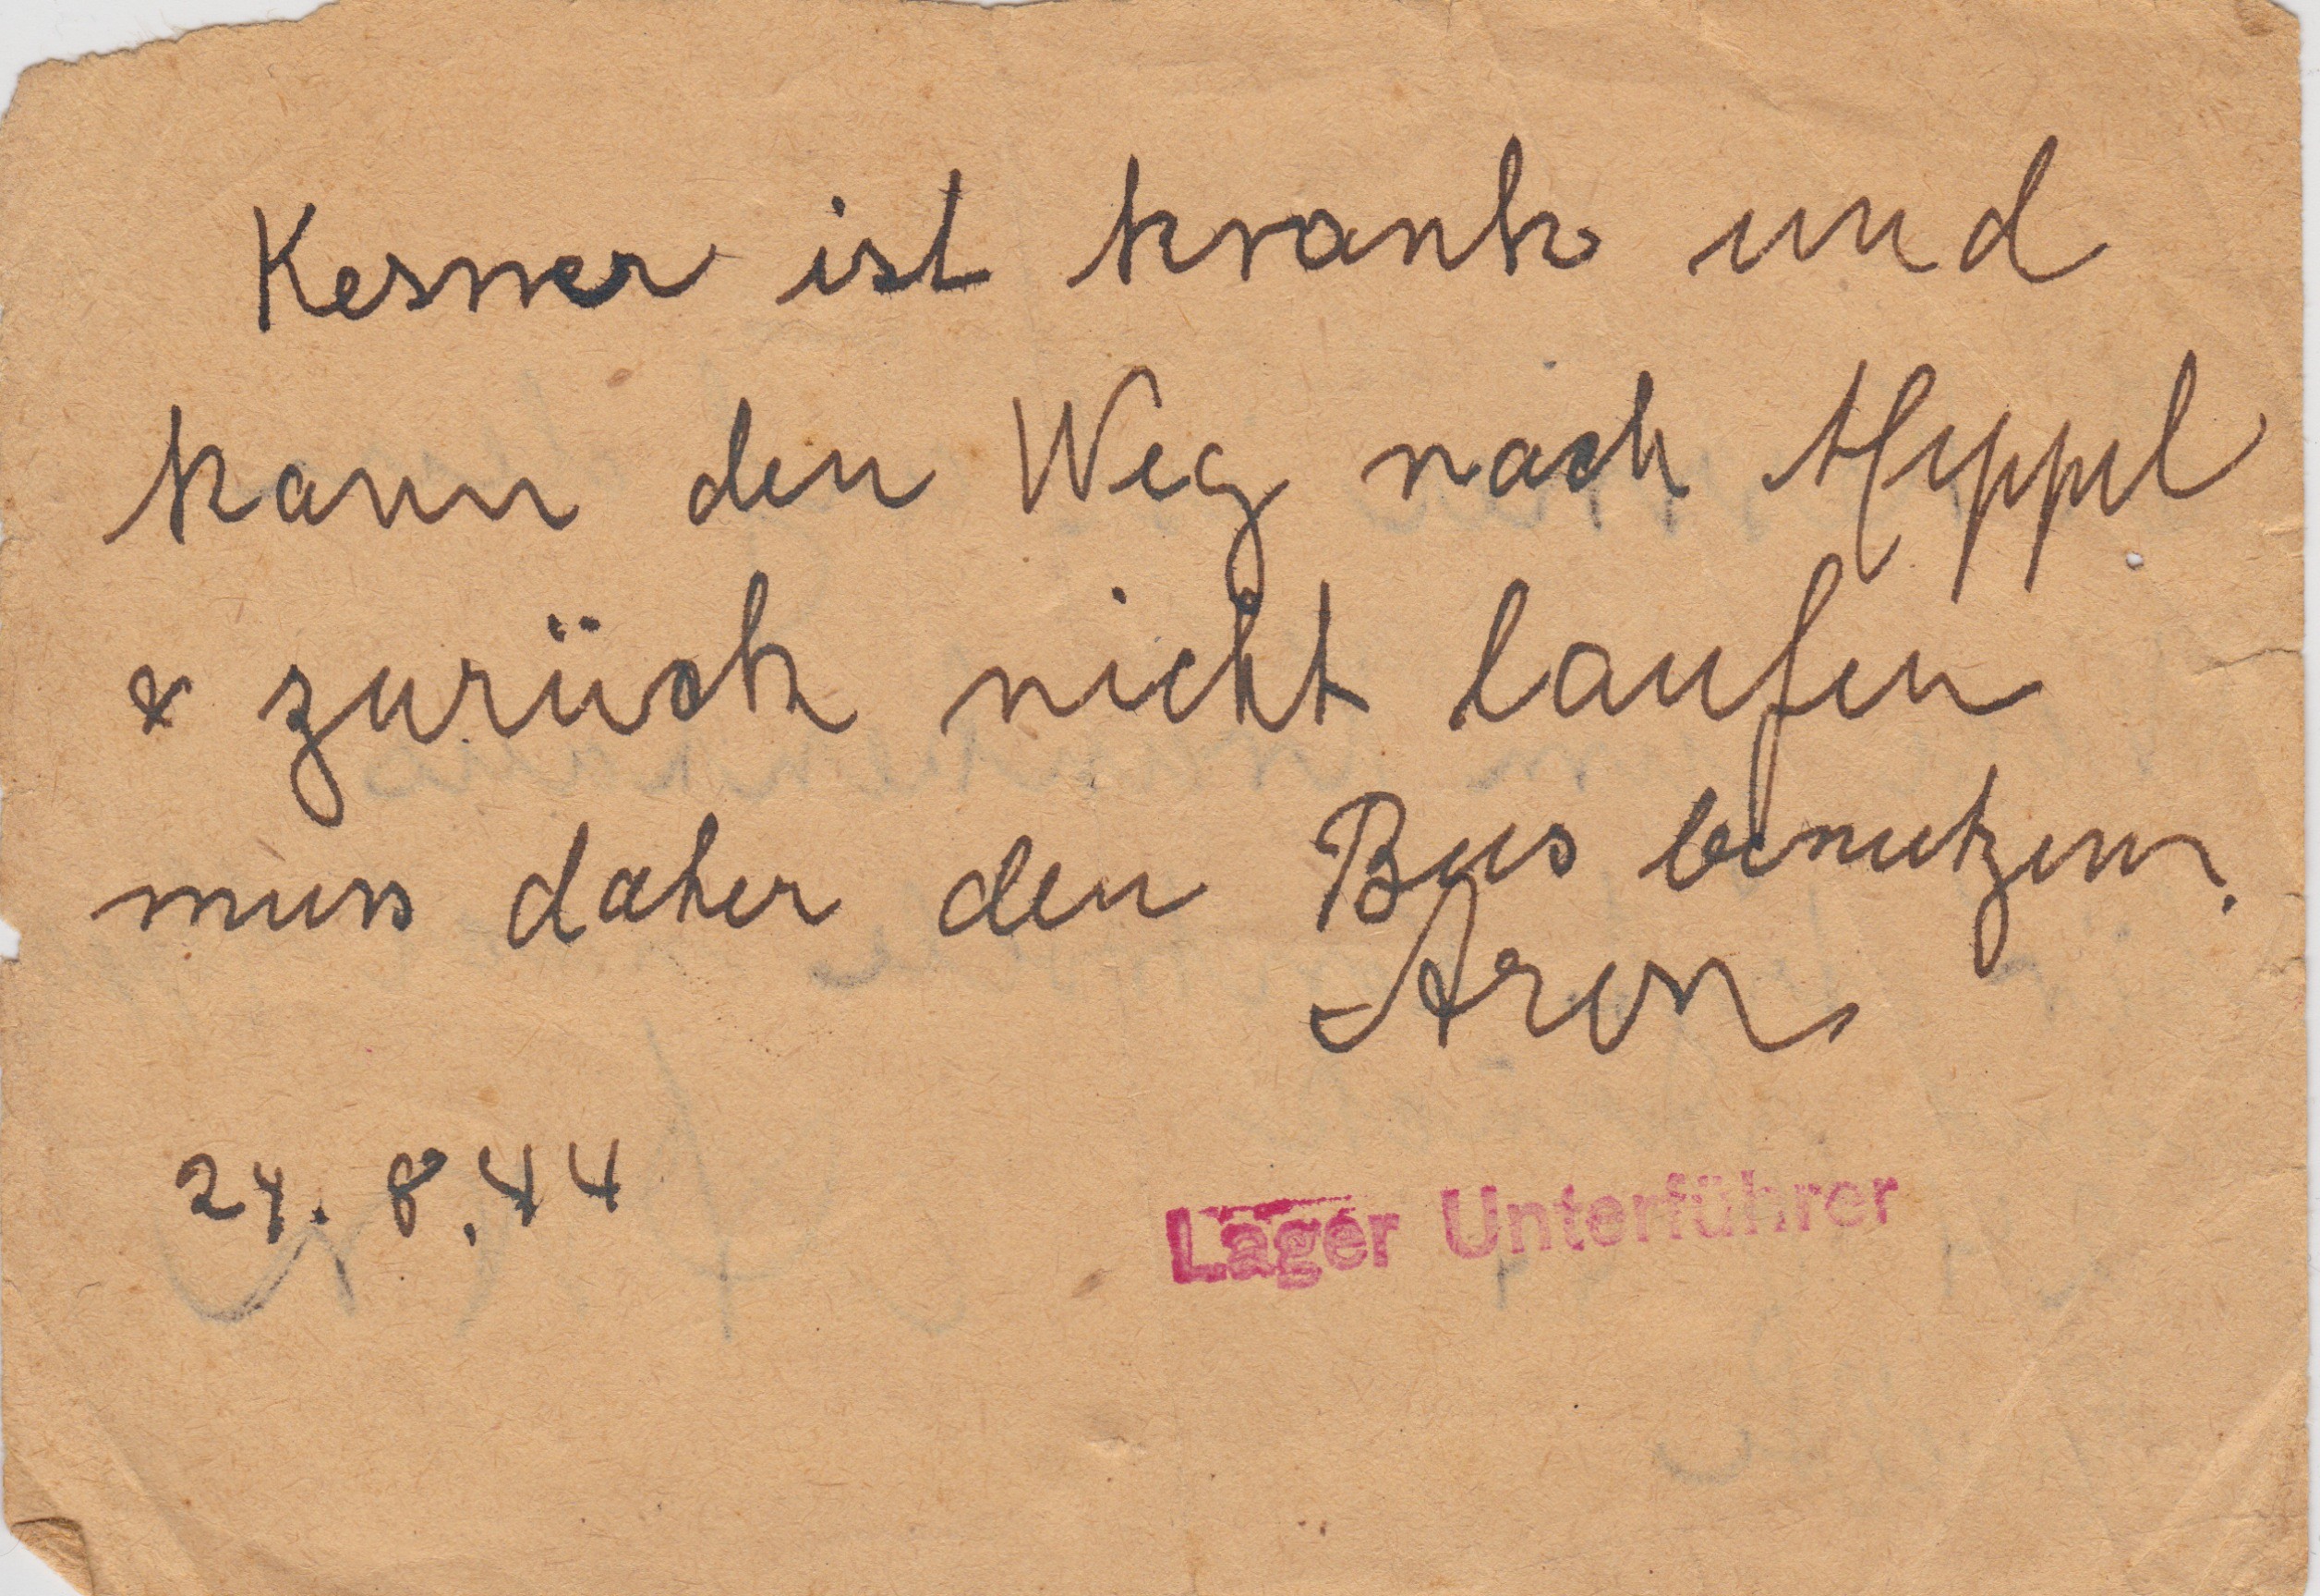 Kesner ist krank und
kann den Weg nach Meppel
& zurück nicht laufen
muss daher den Bus benutzen.
24. 8. 44
Lager Unterführer